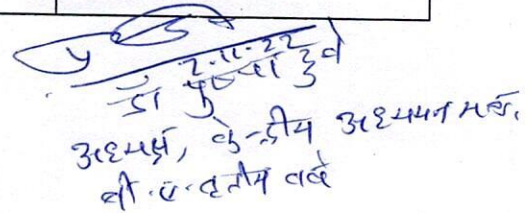 2.11.22
डॉ पुष्पा दुबे
अध्यक्ष, केन्द्रीय अध्ययन मंडल
बी.ए. तृतीय वर्ष